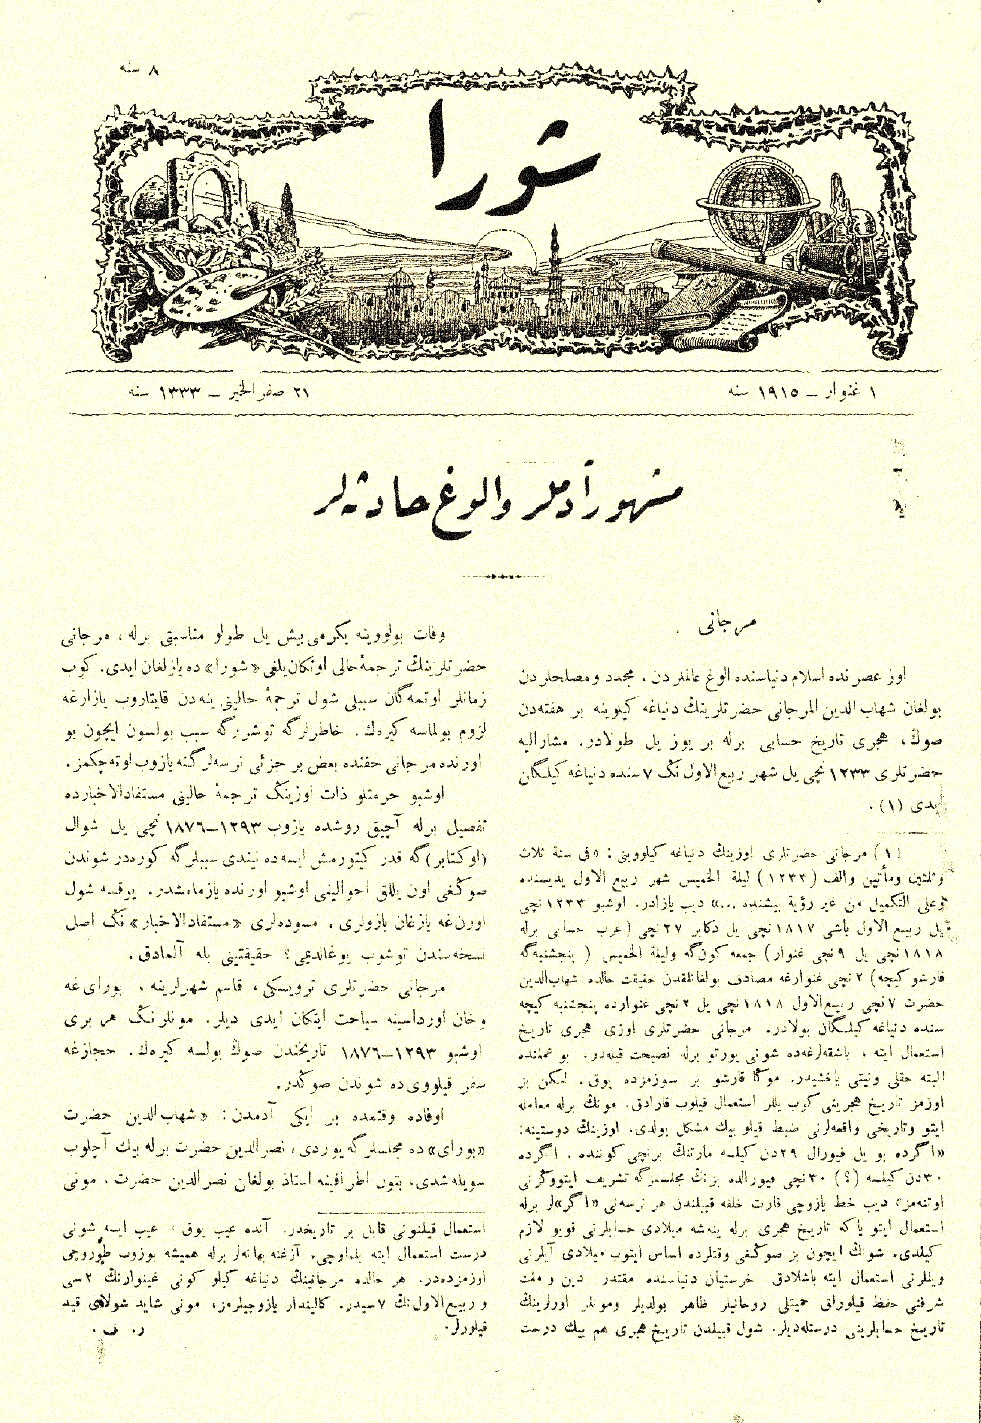 ٨ سنه
شورا
١ غنوار ـ ١٩١٥ سنه
٢١ صفر الخير ـ ١٣٣٣ سنه
مشهور آدملر والوغ حادثه‌لر
مرجانی
اوز عصرنده اسلام دنیاسنده الوغ عالملردن، مجدد ومصلحلردن
بولغان شهاب الدین المرجانی حضرتلرینڭ دنیاغه کیلوینه بر هفته‌دن
صوڭ، هجری تاریخ حسابی برله بر یوز یل طولادر. مشارالیه
حضرتلری ١٢٣٣ نچی یل شهر ربیع الاول نڭ ٧ سنده دنیاغه کیلگان
ایدی (١).
(١) مرجانی حضرتلری اوزینڭ دنیاغه کیلووینی: «فی سنة ثلاث
وثلثین ومأتین والف (١٢٣٣) لیلة الخمیس شهر ربیع الاول یدیسنده
وعلی التکمیل من غیر رؤیة بیشنده ...» دیب یازادر. اوشبو ١٢٣٣ نچی
یل ربیع الاول باشی ١٨١٧ نچی یل دکابر ٢٧ نچی (عرب حسابی برله
١٨١٨ نچی یل ٩ نچی غنوار) جمعه کون‌گه ولیلة الخمیس (پنجشنبه‌گه
قارشو کیچه) ٢ نچی غنوارغه مصادف بولغانلقدن حقیقت حالده شهاب‌الدین
حضرت ٧ نچی ربیع‌الاول ١٨١٨ نچی یل ٢ نچی غنوارده پنجشنبه کیچه
سنده دنیاغه کیلگان بولادر. مرجانی حضرتلری اوزی هجری تاریخ
استعمال ایته، باشقه‌لرغه‌ده شونی یورتو برله نصیحت قیله‌در. بو عملنده
البته حقلی ونیتی یاخشیدر. موڭا قارشو بر سوزمزده یوق. لکن بز
اوزمز تاریخ هجرینی کوب یللر استعمال قیلوب قارادق. مونڭ برله معامله
ایتو وتاریخی واقعه‌لرنی ضبط قیلو بیك مشکل بولدی. اوزینڭ دوستینه:
«اگرده بو یل فیورال ٢٩ دن کیلسه مارتنڭ برنچی کوننده، اگرده
٣٠ دن کیلسه (؟) ٣٠ نچی فیورالده بزنڭ مجلسمزگه تشریف ایتووڭزنی
اوتنه‌مز» دیب خط یازوچی قارت خلفه قبیلندن هر نرسه‌نی «اگر»لر برله
استعمال ایتو یاکه تاریخ هجری برله ینه‌شه میلادی حسابلرنی قویو لازم
کیلدی. شونڭ ایچون بز صوڭغی وقتلرده اساس ایتوب میلادی آیلرنی
ویللرنی استعمال ایته باشلادق. خرستیان دنیاسنده مقتدر دین و ملت
شرفنی حفظ قیلوراق حمیتلی روحانیلر ظاهر بولدیلر ومونلر اوزلرینڭ
تاریخ حسابلرینی درستله‌دیلر. شول قبیلدن تاریخ هجری هم بیك درست
وفات بولووینه یکرمی بیش یل طولو مناسبتی برله، مرجانی
حضرتلرینڭ ترجمۀ حالی اوتکان یلغی «شورا» ده یازلغان ایدی. کوب
زمانلر اوتمه‌گان سببلی شول ترجمۀ حالینی ینه‌دن قایتاروب یازارغه
لزوم بولماسه کیرەك. خاطرلرگه توشررگه سبب بولسون ایچون بو
اورنده مرجانی حقنده بعض بر جزئی نرسه‌لر گنه یازوب اوته‌چکمز.
اوشبو حرمتلو ذات اوزینڭ ترجمۀ حالینی مستفادالاخبارده
تفصیل برله آچیق روشده یازوب ١٢٩٣—١٨٧٦ نچی یل شوال
(اوکتابر)گه قدر کیتورمش ایسه‌ده نیندی سببلرگه کوره‌در شوندن
صوڭغی اون یللق احوالینی اوشبو اورنده یازمامشدر. یوقسه شول
اورن‌غه یازغان یازولری، مسوده‌لری «مستفادالاخبار» نڭ اصل
نسخه‌سندن توشوب یوغالدیمی؟ حقیقتینی بله آلمادق.
مرجانی حضرتلری ترویسکی، قاسم شهرلرینه، بورای‌غه
وخان اورداسینه سیاحت ایتکان ایدی دیلر. مونلرنڭ هر بری
اوشبو ١٢٩٣—١٨٧٦ تاریخندن صوڭ بولسه کیرەك. حجازغه
سفر قیلووی‌ده شوندن صوڭدر.
اوفاده وقتمده بر ایکی آدمدن: «شهاب‌الدین حضرت
«بورای» ده مجلسلرگه یوردی، نصرالدین حضرت برله بیك آچلوب
سویله‌شدی، بتون اطرافینه استاذ بولغان نصرالدین حضرت، مونی
استعمال قیلنونی قابل بر تاریخدر. آنده عیب یوق، عیب ایسه شونی
درست استعمال ایته بلماوچی، آزغنه بهانه‌لر برله همیشه بوزوب طوروچی
اوزمزده‌در. هر حالده مرجانینڭ دنیاغه کیلو کونی غینوارنڭ ٢ سی
و ربیع الاول نڭ ٧ سیدر. کالیندار یازوچیلرمز، مونی شاید شولای قید
قیلورلر.
ر. ف.